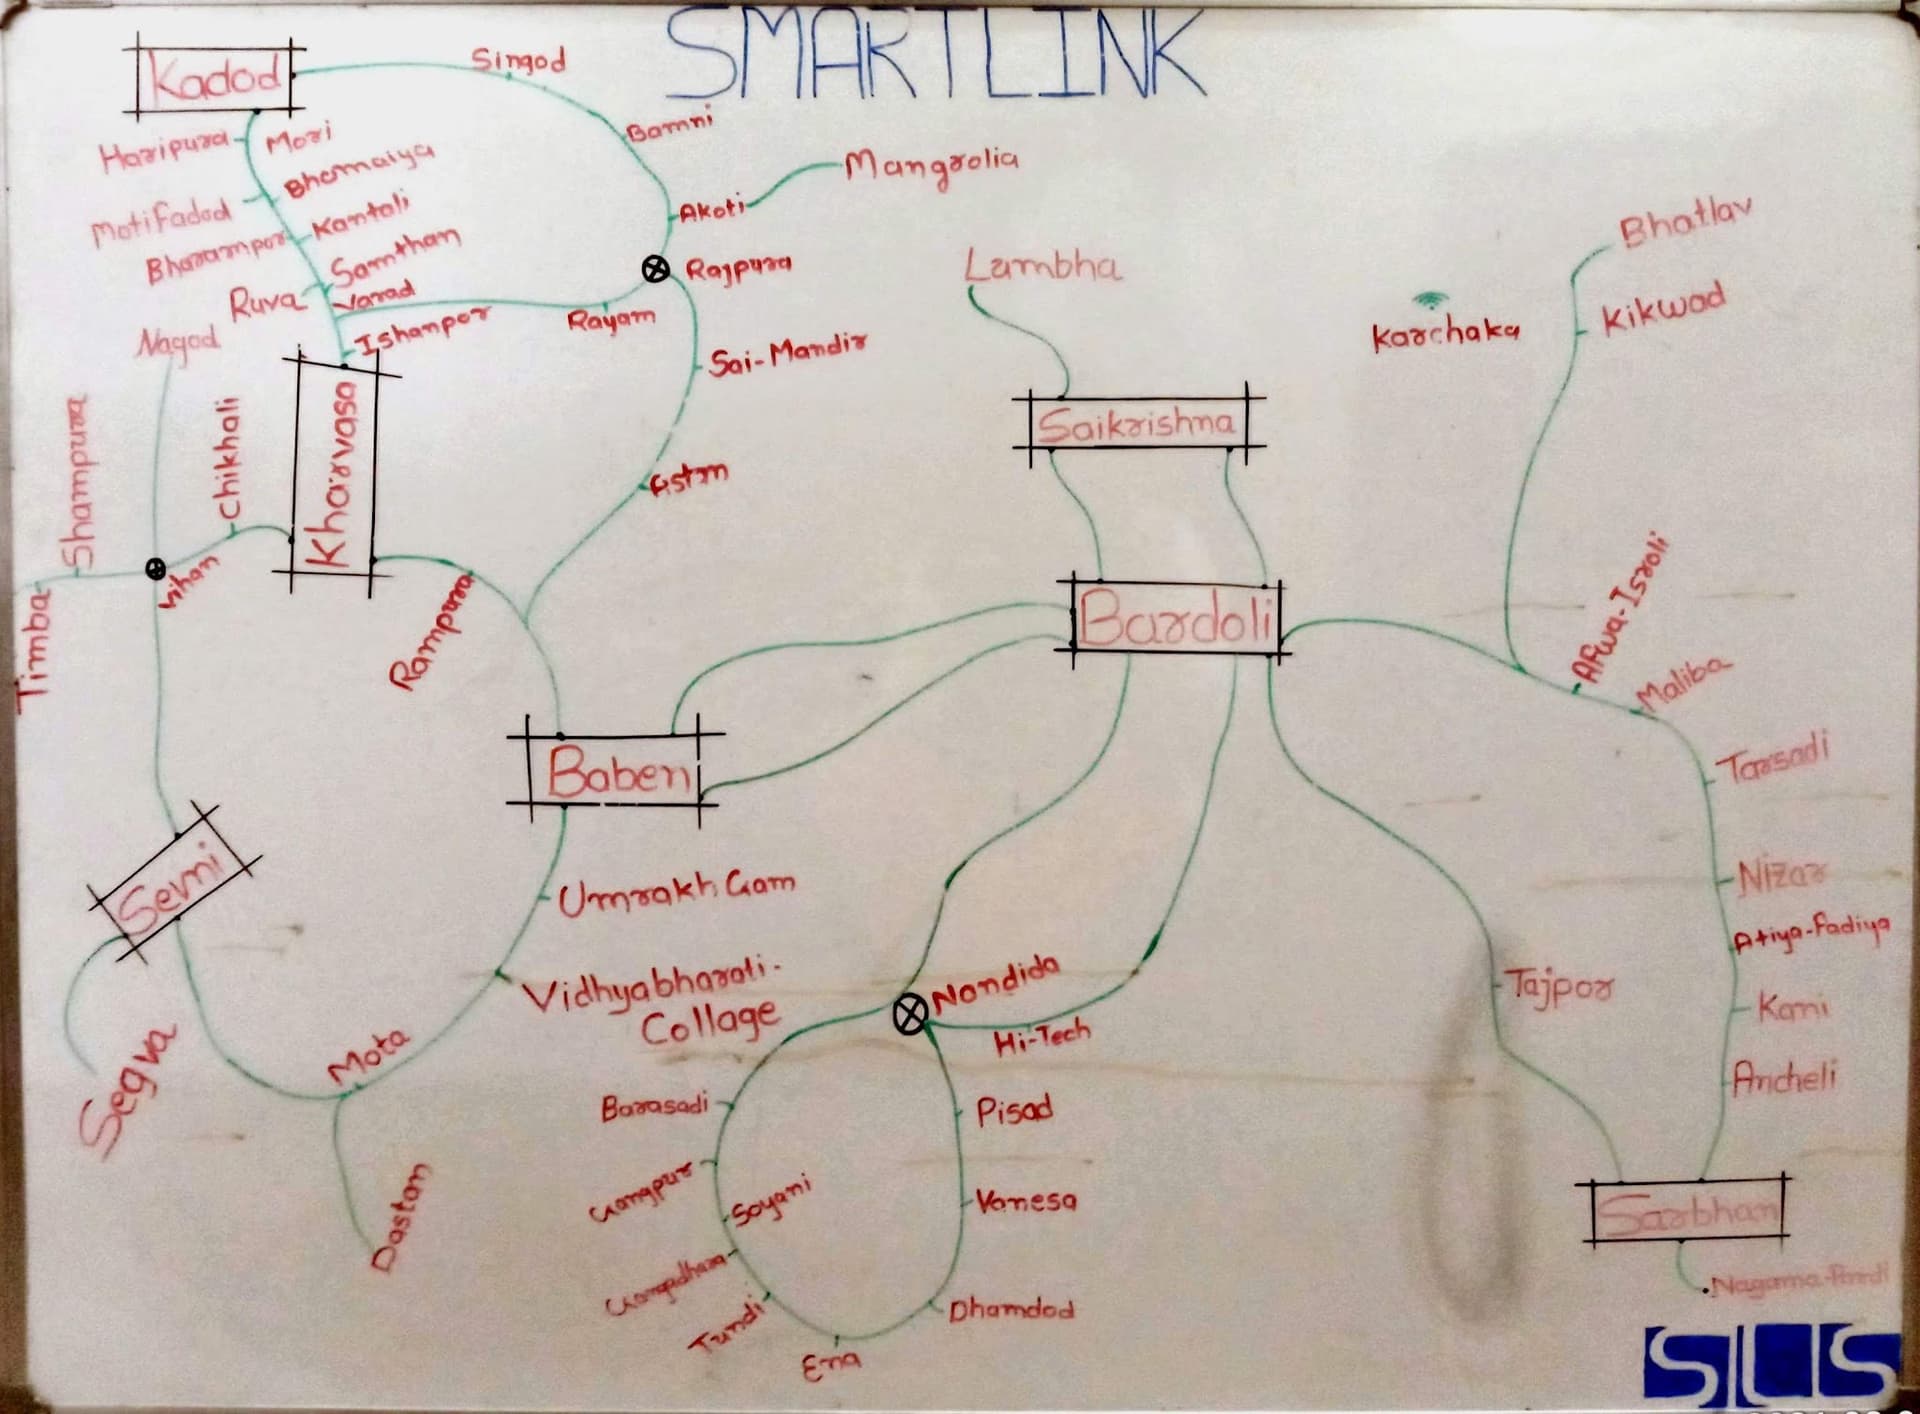 SMARTLINK
Kadod
Singod
Bamni
Haripura
Mori
Bhamaiya
Mangrolia
Motifadod
Kantali
Akoti
Bharampor
Samthan
Rajpura
Lambha
Bhatlav
Ruva
Varad
Rayam
Kikwad
Nagod
Ishanpor
Karchaka
Sai-Mandir
Kharvasa
Shampura
Chikhali
Saikrishna
Astan
Vihan
Timba
Rampura
Bardoli
Afwa-Isroli
Maliba
Baben
Tarsadi
Sevni
Umrakh Gam
Nizar
Atiya-Fadiya
Vidhyabharati-
Collage
Nandida
Tajpor
Kani
Hi-Tech
Mota
Segva
Barasadi
Pisad
Ancheli
Gangpur
Soyani
Vanesa
Dastan
Sarbhan
Gangadhara
Tundi
Dhamdod
Ena
SLS